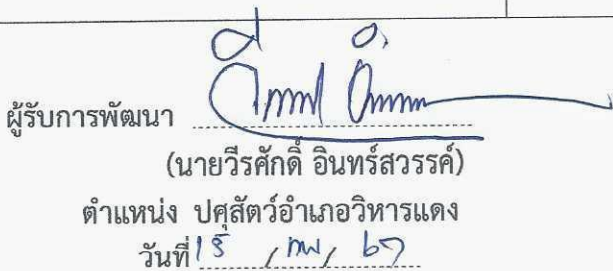 ผู้รับการพัฒนา
(นายวีรศักดิ์ อินทร์สวรรค์)
ตำแหน่ง ปศุสัตว์อำเภอวิหารแดง
วันที่ / กพ / ๖๗